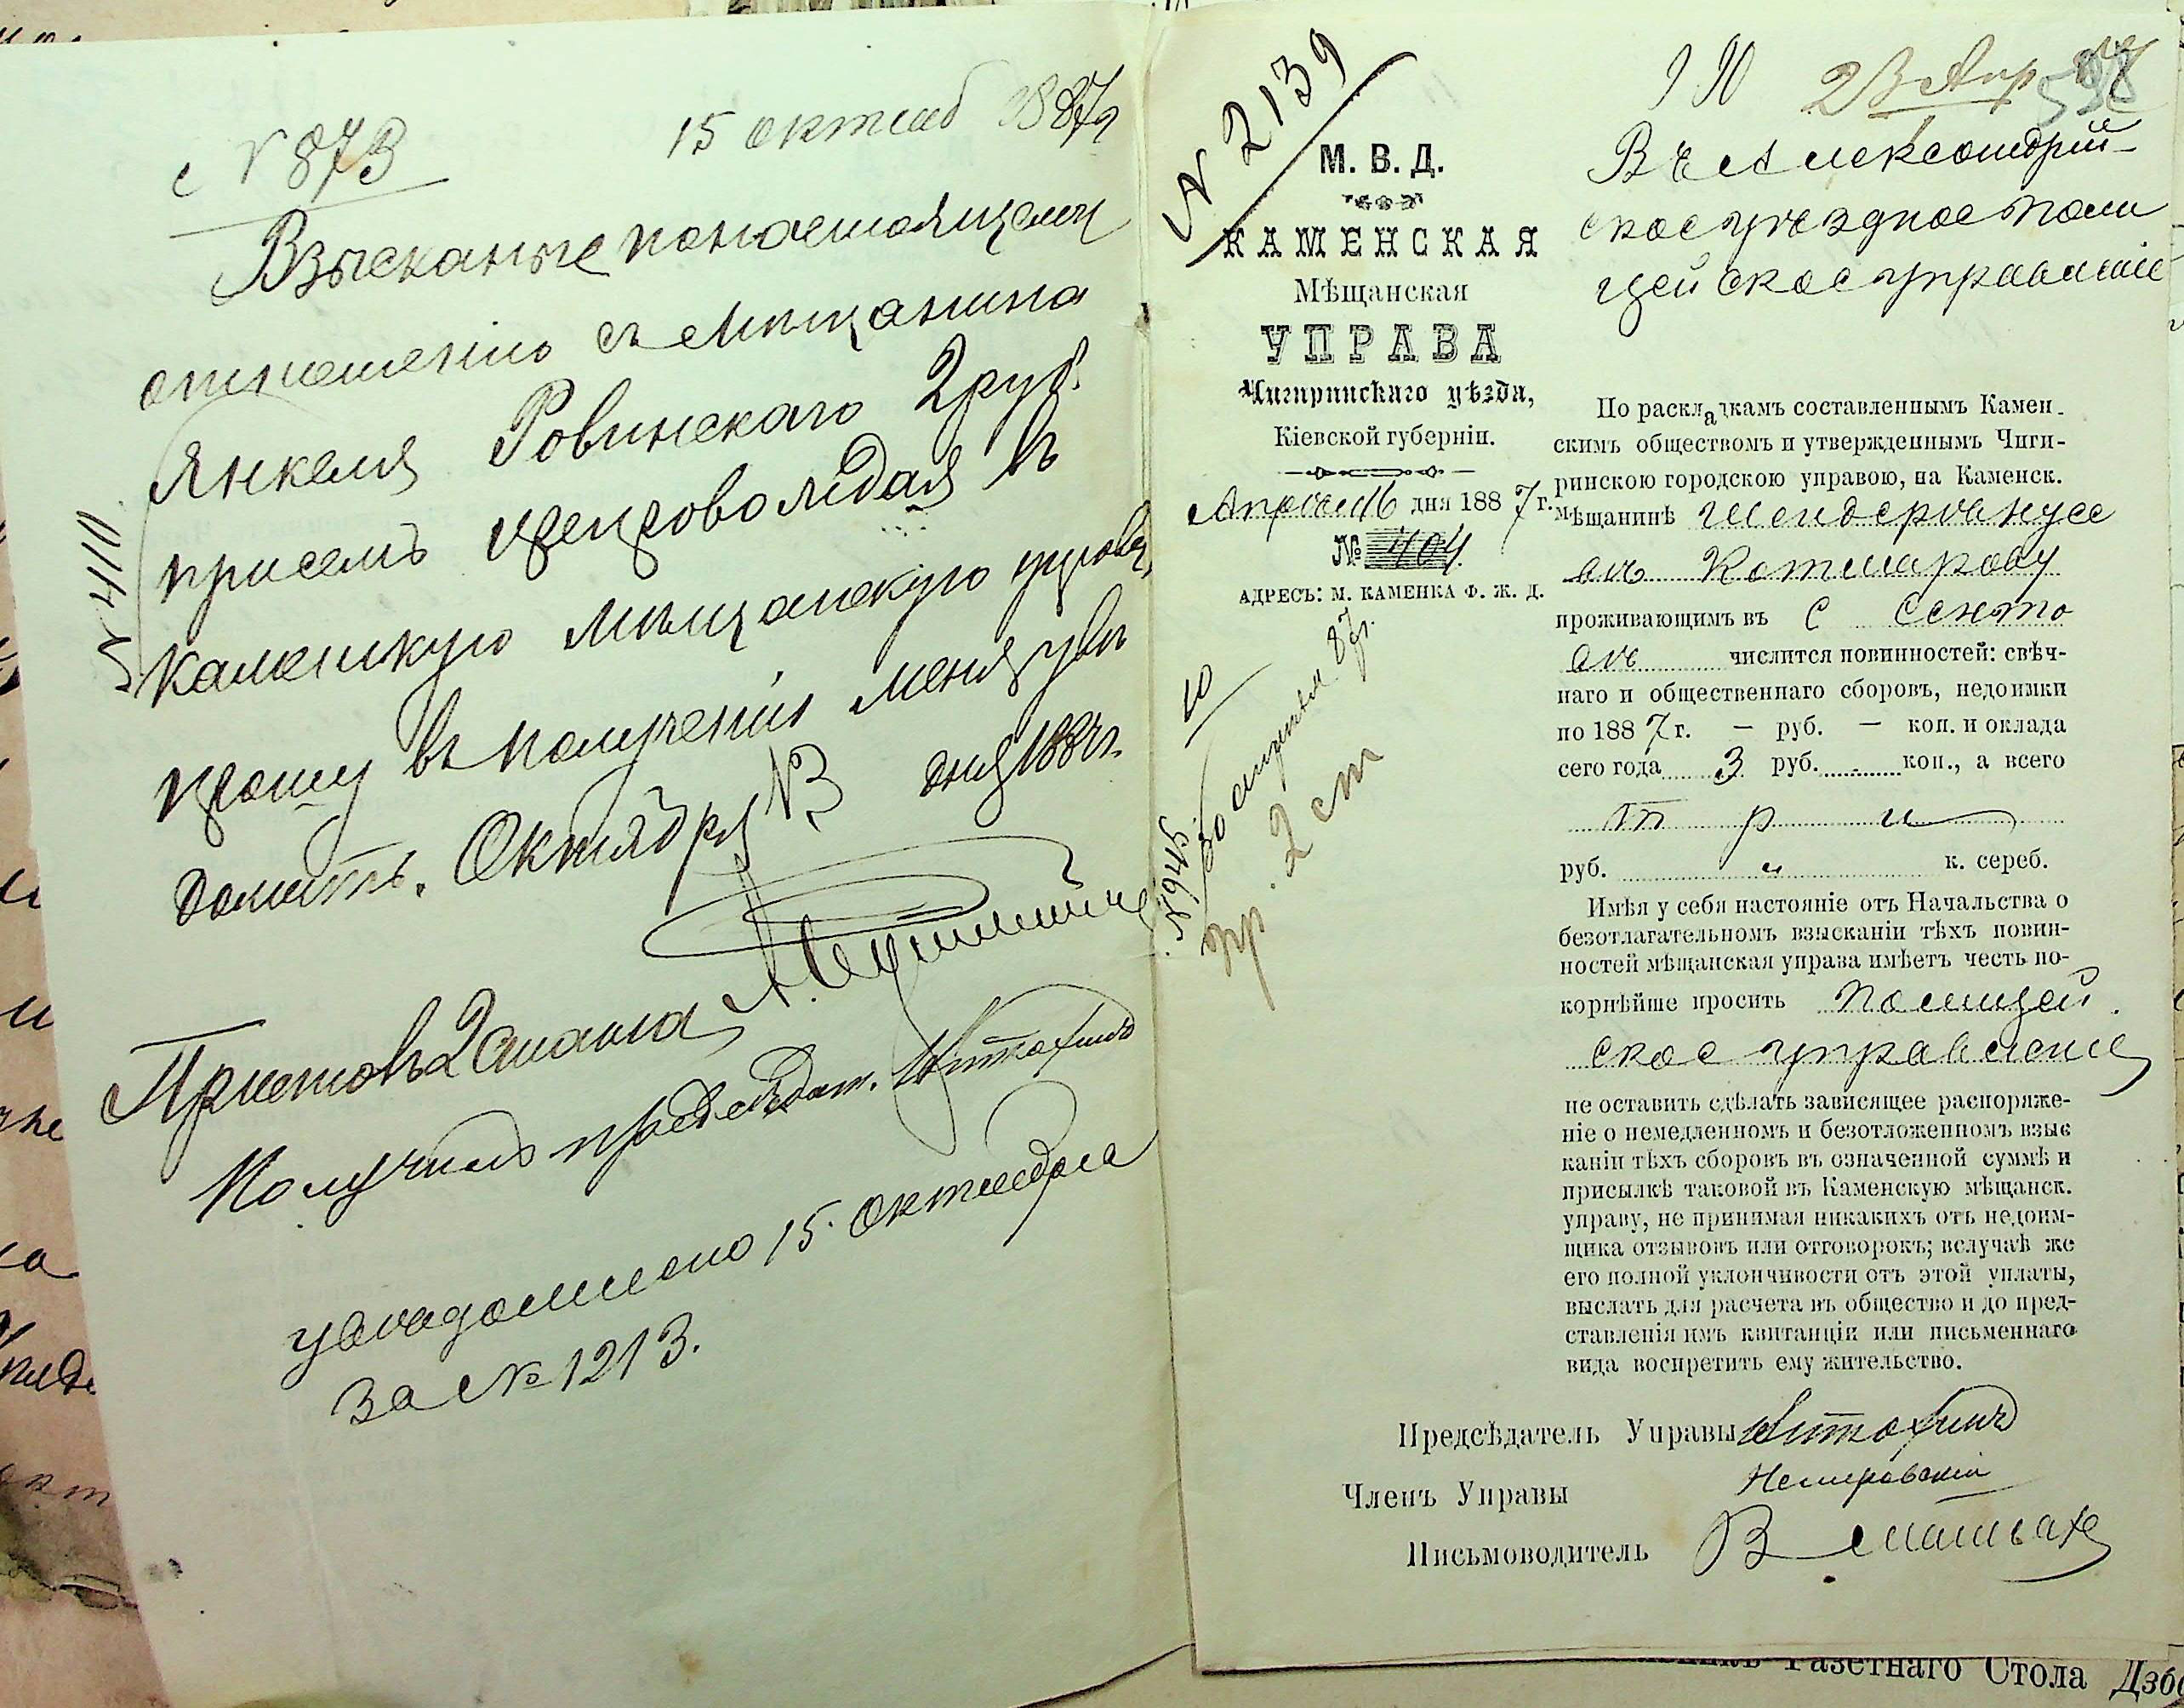 15 октяб 1887 г
№ 873
Взысканые по настоящему
отношению съ мещанина
Янкеля Ровинскаго 2 руб.
при семъ препровождая въ
Каменскую мещанскую управу,
прошу въ получении меня уве
домить. Октября 13 дня 1887 г.
№ 410
Приставъ 2 стана
Получилъ председат.
уведомлено 15 октября
за № 1213.
№ 2139
М. В. Д.
КАМЕНСКАЯ
Мѣщанская
УПРАВА
Чигиринскаго уѣзда,
Кіевской губерніи.
Апреля 16 дня 1887 г.
№ 404
АДРЕСЪ: М. КАМЕНКА Ф. Ж. Д.
10
30 апреля 87 г.
пр. 2 ст
23 Апр
Въ Александрій
ское уездное поли
цейское управленіе
По раскладкамъ составленнымъ Камен-
скимъ обществомъ и утвержденнымъ Чиги-
ринскою городскою управою, на Каменск.
мѣщанинѣ
проживающимъ въ с
числится повинностей: свѣч-
наго и общественнаго сборовъ, недоимки
по 1887 г. — руб. — коп. и оклада
сего года 3 руб. - коп., а всего
три
руб. " к. сереб.
Имѣя у себя настояніе отъ Начальства о
безотлагательномъ взысканіи тѣхъ повин-
ностей мѣщанская управа имѣетъ честь по-
корнѣйше просить Полицей
ское управление
не оставить сдѣлать зависящее распоряже-
ніе о немедленномъ и безотложенномъ взыс
каніи тѣхъ сборовъ въ означенной суммѣ и
присылкѣ таковой въ Каменскую мѣщанск.
управу, не принимая никакихъ отъ недоим-
щика отзывовъ или отговорокъ; вслучаѣ же
его полной уклончивости отъ этой уплаты,
выслать для расчета въ общество и до пред-
ставленія имъ квитанціи или письменнаго
вида воспретить ему жительство.
Предсѣдатель Управы
Членъ Управы Немировскій
Письмоводитель
Газетнаго Стола